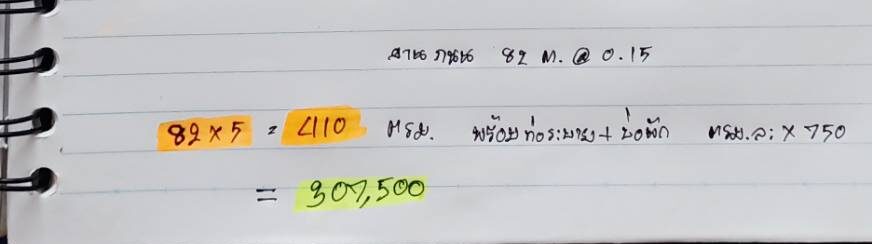 ลานถนน 82 ม. @ 0.15
82 x 5 = 410 ตรม. พร้อมท่อระบาย + บ่อพัก ตรม.ละ x 750
= 307,500